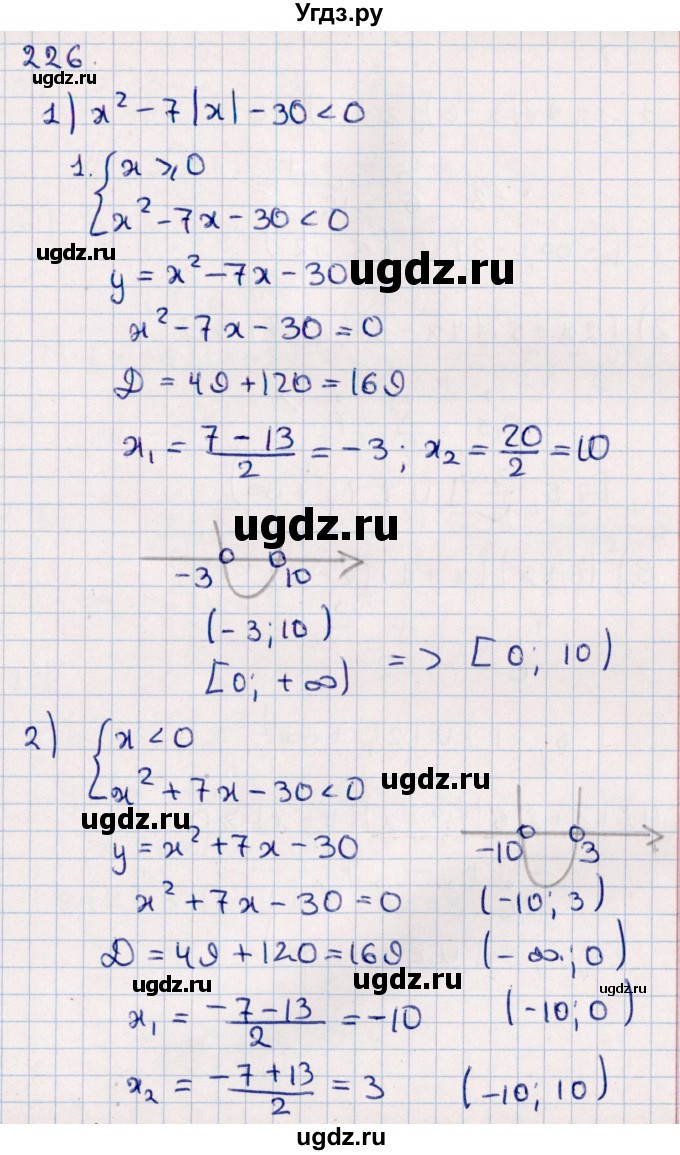 Угдз.ру
226.
ugdz.ru
1) x² - 7|x| - 30 < 0
1. { x ⩾ 0
x² - 7x - 30 < 0
ugdz.ru
y = x² - 7x - 30
ugdz.ru
x² - 7x - 30 = 0
D = 49 + 120 = 169
x₁ = (7 - 13)/2 = -3; x₂ = 20/2 = 10
ugdz.ru
-3 10
(-3; 10)
[0; +∞) => [0; 10)
2) { x < 0
x² + 7x - 30 < 0
ugdz.ru
ugdz.ru
y = x² + 7x - 30
-10 3
x² + 7x - 30 = 0 (-10; 3)
D = 49 + 120 = 169 (-∞; 0)
ugdz.ru
ugdz.ru
x₁ = (-7 - 13)/2 = -10 (-10; 0)
x₂ = (-7 + 13)/2 = 3 (-10; 10)
ugdz.ru
ugdz.ru